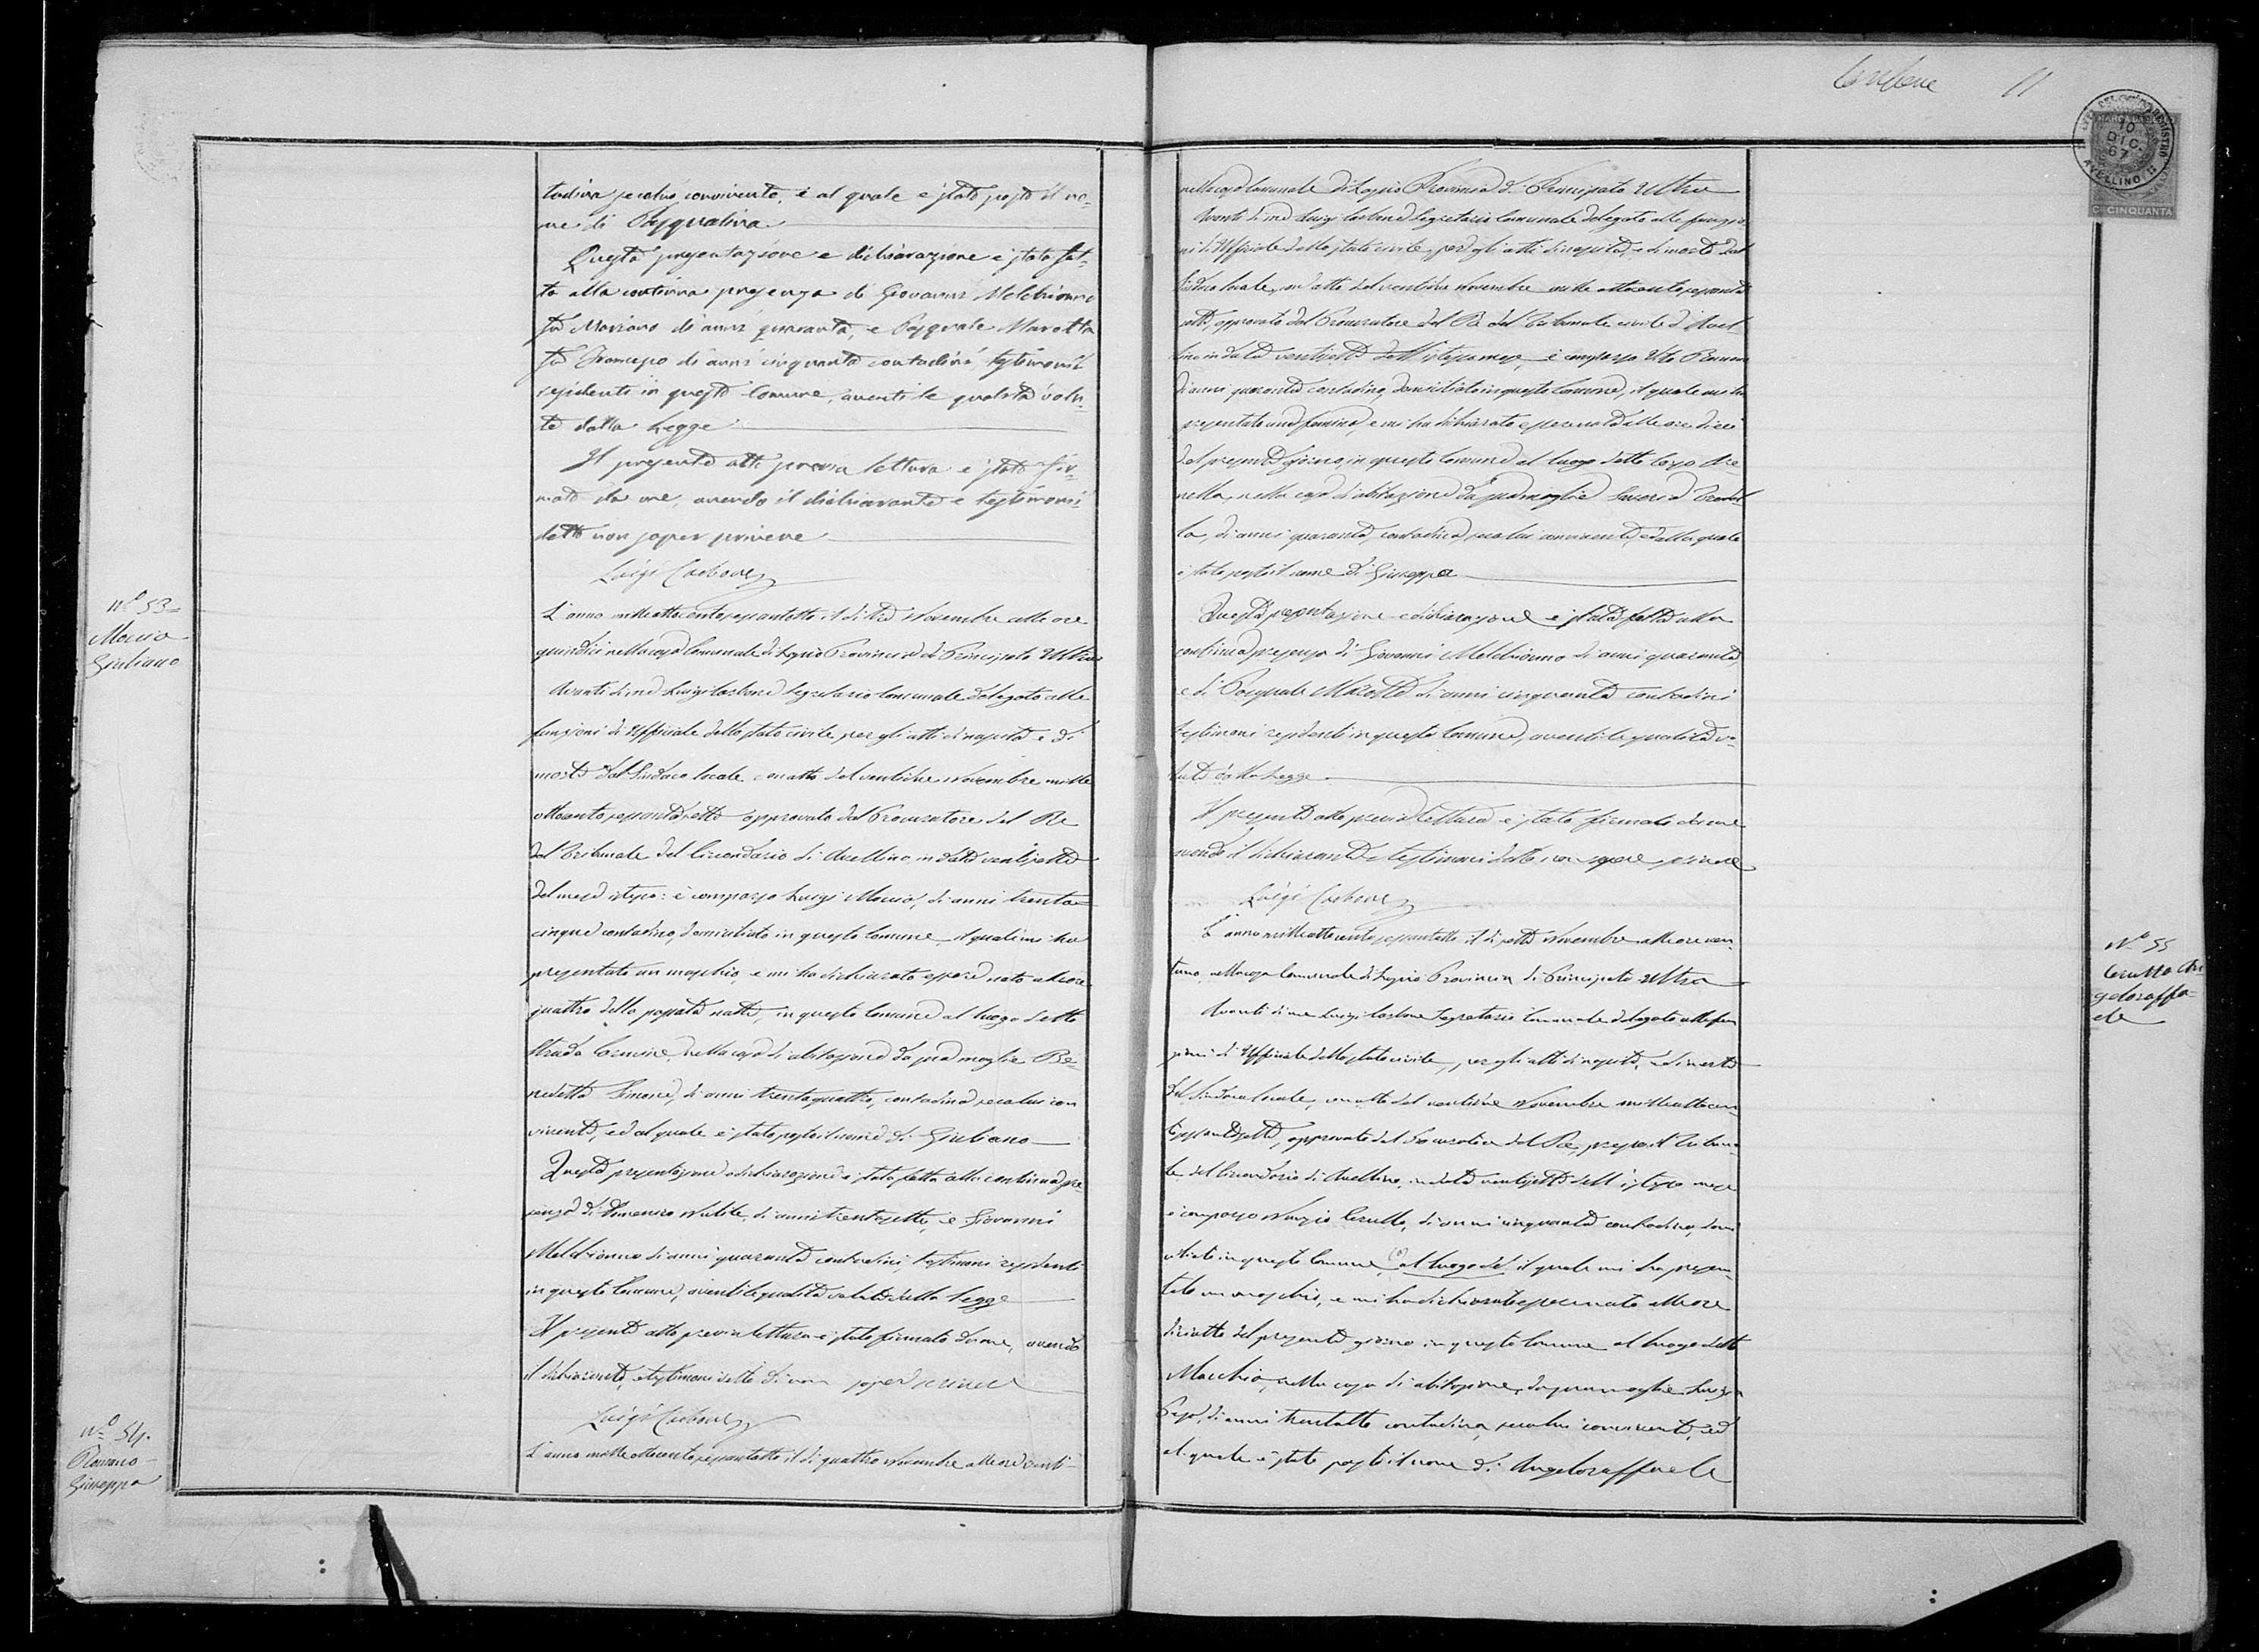 Carbone 11
10
DIC.
67
AVELLINO
MARCA DA BOLLO
Ct CINQUANTA
tadina secolui convivente, e al quale è stato posto il no=
me di Pasqualina
Questa presentazione e dichiarazione è stata fat=
ta alla continua presenza di Giovanni Melchionno
fu Mariano di anni quaranta, e Pasquale Marotta
fu Francesco di anni cinquanta contadini, testimonii
residenti in questo Comune, aventi le qualità volu=
te dalla Legge
Il presente atto previa lettura è stato fir=
mato da me, avendo il dichiarante e testimoni
detto non saper scrivere
Luigi Carbone
N.° 53=
Moccia
Giuliano
L'anno milleottocentosessantotto il dì tre Novembre alle ore
quindici nella casa Comunale di Lapio Provincia di Principato Ultra
Avanti di me Luigi Carbone Segretario Comunale delegato alle
funzioni di Uffiziale dello stato civile per gli atti di nascita e di
morte dal Sindaco locale con atto del ventidue Novembre mille
ottocento sessantasette approvato dal Procuratore del Re
del Tribunale del Circondario di Avellino in data ventisette
del mese istesso: è comparso Luigi Moccia, di anni trenta=
cinque contadino, domiciliato in questo Comune, il quale mi ha
presentato un maschio, e mi ha dichiarato essere nato alle ore
quattro della passata notte, in questo Comune al luogo detto
Strada nella casa di abitazione da sua moglie Be=
nedetta Simone, di anni trentaquattro, contadina secolui con
vivente, ed al quale è stato posto il nome di Giuliano
Questa presentazione e dichiarazione è stata fatta alla continua pre=
senza di Domenico di anni trentasette, e Giovanni
Melchionno di anni quaranta contadini, testimoni residenti
in questo Comune, aventi le qualità volute dalla Legge
Il presente atto previa lettura è stato firmato da me, avendo
il dichiarante, e testimoni detto di non saper scrivere
Luigi Carbone
N.° 54.
Romano
Giuseppa
L'anno milleottocentosessantotto il dì quattro Novembre alle ore venti=
nella casa Comunale di Lapio Provincia di Principato Ultra
Avanti di me Luigi Carbone Segretario Comunale delegato alle funzio
ni di Uffiziale dello stato civile, per gli atti di nascita, e di morte dal
Sindaco locale, con atto del ventidue Novembre mille ottocento sessanta
sette, approvato dal Procuratore del Re del Tribunale civile d'Avel=
lino in data ventisette dell'istesso mese, è comparso Vito Romano
di anni quaranta contadino, domiciliato in questo Comune, il quale mi ha
presentato una femina, e mi ha dichiarato essere nata alle ore dieci
del presente giorno, in questo Comune al luogo detto Are=
nella, nella casa d'abitazione da sua moglie
la, di anni quaranta, contadina, secolui convivente, ed alla quale
è stato posto il nome di Giuseppa
Questa presentazione e dichiarazione è stata fatta alla
continua presenza di Giovanni Melchionno di anni quaranta,
e di Pasquale Marotta di anni cinquanta contadini
testimoni residenti in questo Comune, aventi le qualità vo=
lute dalla Legge.
Il presente atto previa lettura è stato firmato da me
avendo il dichiarante e testimoni detto non sapere scrivere
Luigi Carbone
N.° 55
Cerullo An=
geloraffa=
ele
L'anno milleottocentosessantotto il dì sette Novembre alle ore ven=
tuno, nella casa Comunale di Lapio Provincia di Principato Ultra
Avanti di me Luigi Carbone Segretario Comunale delegato alle fun
zioni di Uffiziale dello stato civile, per gli atti di nascita, e di morte
dal Sindaco locale, con atto del ventidue Novembre milleottocen=
tosessantasette, approvato dal Procuratore del Re, presso il Tribuna
le del Circondario di Avellino, in data ventisette dell'istesso mese
è comparso Nunzio Cerullo, di anni cinquanta contadino, domi
ciliato in questo Comune, (a) al luogo det il quale mi ha presen=
tato un maschio, e mi ha dichiarato essere nato alle ore
diciotto del presente giorno in questo Comune al luogo detto
Macchia, nella casa di abitazione, da sua moglie Luigia
di anni trentotto contadina, secolui convivente, ed
al quale è stato posto il nome di Angeloraffaele